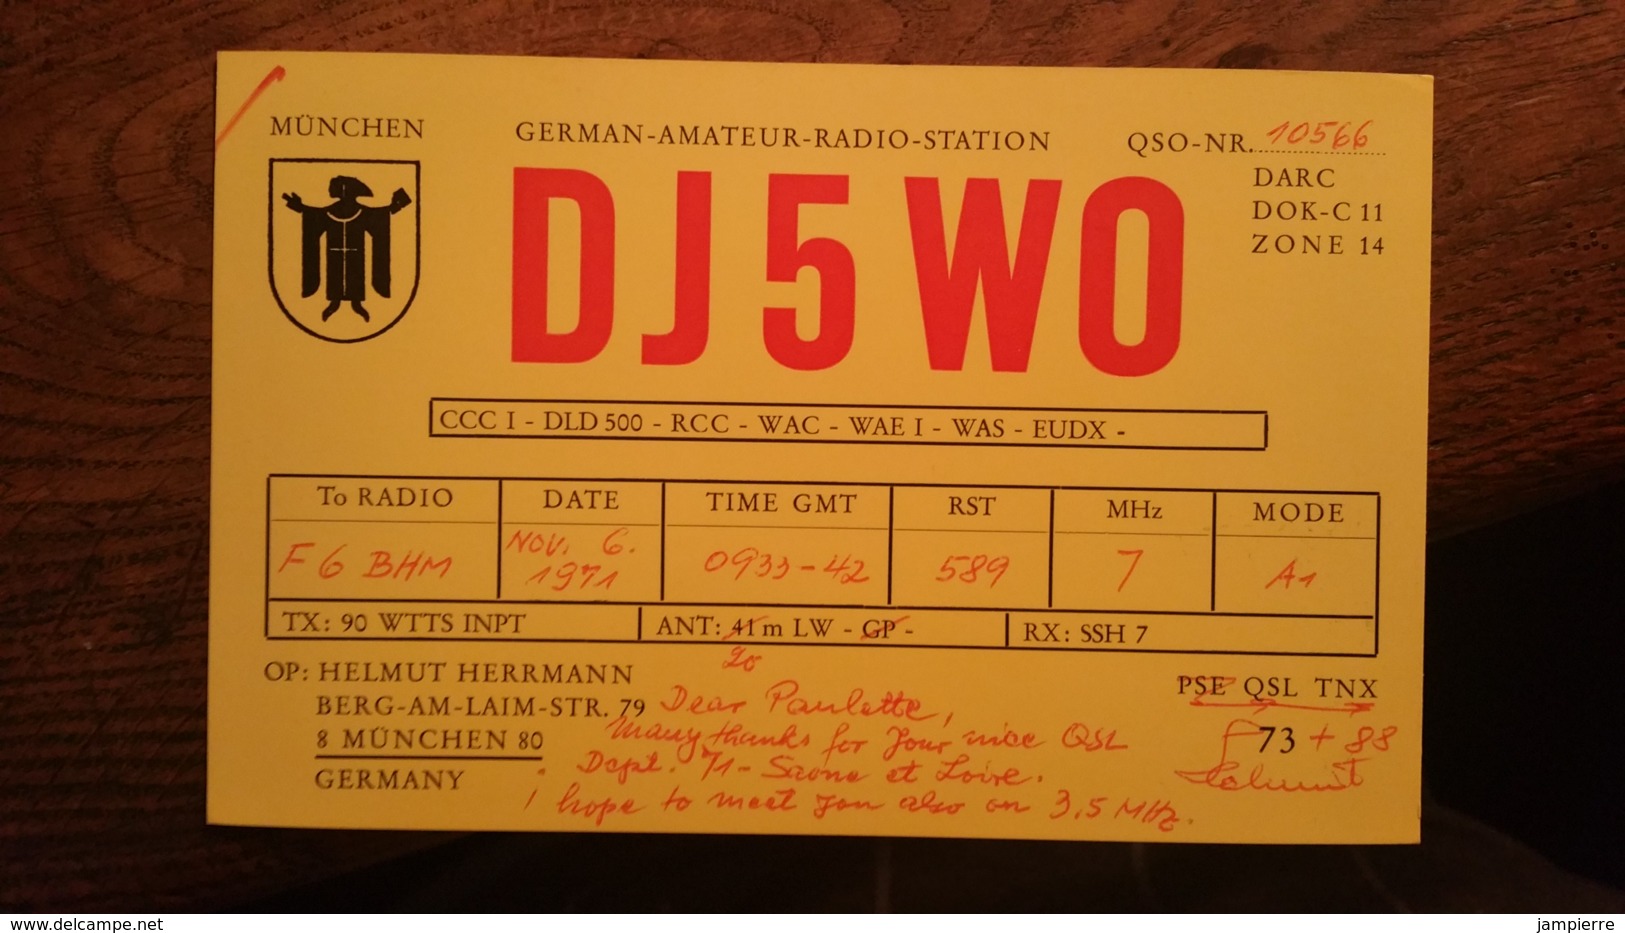 MÜNCHEN
GERMAN-AMATEUR-RADIO-STATION
QSO-NR. 10566
DARC
DOK-C 11
ZONE 14
DJ5WO
CCC I - DLD 500 - RCC - WAC - WAE I - WAS - EUDX -
To RADIO DATE TIME GMT RST MHz MODE
F6BHM NOV. 6. 1971 0933-42 589 7 A1
TX: 90 WTTS INPT ANT: 41 m LW - GP - RX: SSH 7
20
OP: HELMUT HERRMANN
BERG-AM-LAIM-STR. 79
8 MÜNCHEN 80
GERMANY
PSE QSL TNX
73 + 88
Helmut
Dear Paulette,
Many thanks for your nice QSL
Dept. 71 - Saone et Loire.
i hope to meet you also on 3,5 MHz.
www.delcampe.net
jampierre